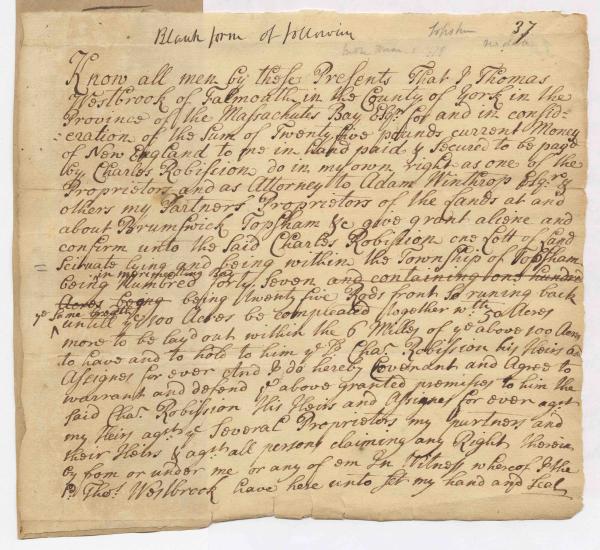 37
Blank form of following
Topsham
Know all men by these Presents That I Thomas
Westbrook of Falmouth in the County of York in the
Province of the Massachuts Bay Esqr. for and in consid-
-eration of the Sum of Twenty five pounds current Money
of New England to me in hand paid & Secured to be payd
by Charles Robisson do in my own right as one of the
Proprietors and as Attorney to Adam Winthrop Esqr. &
others my Partners Proprietors of the Lands at and
about Brumswick Topsham &c give grant aliene and
confirm unto the Said Charles Robisson one Lott of Land
Scituate lying and being within the Township of Topsham
in merrymeeting Bay
being numbred forty Seven and containing one hundred
Acres being being twenty five Rods front So runing back
ye Same breadth
untill ye 100 Acres be compleated together wth. 50 Acres
more to be laid out within the 6 Miles of ye above 100 Acres
to have and to hold to him ye Sd. Chas. Robisson his Heirs and
Assignes for ever And I do hereby Covenant and Agree to
warrant and defend ye above granted premises to him the
Said Chas. Robisson His Heirs and Assignes for ever agst
my Heirs agst. ye Several Proprietors my partners and
their Heirs & agst all persons claiming any Right therein
by from or under me or any of em In Witness whereof I the
Sd. Thos. Westbrook have here unto Set my hand and Seal